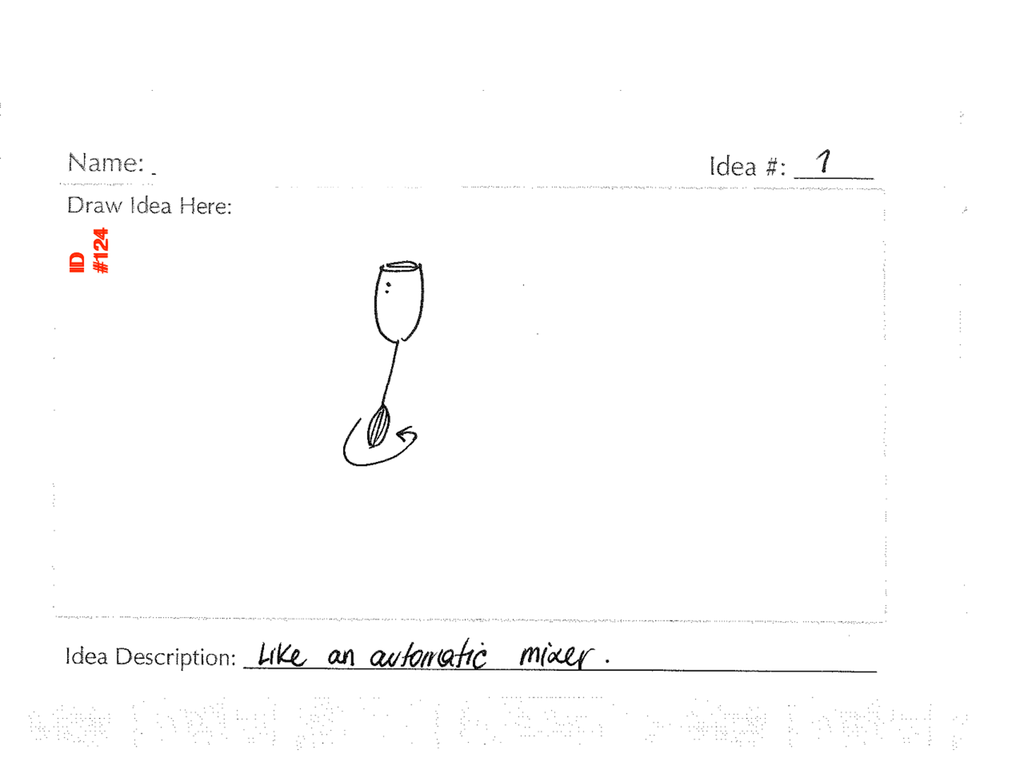 Name:
Idea #: 1
Draw Idea Here:
ID
#124
Idea Description: Like an automatic mixer.